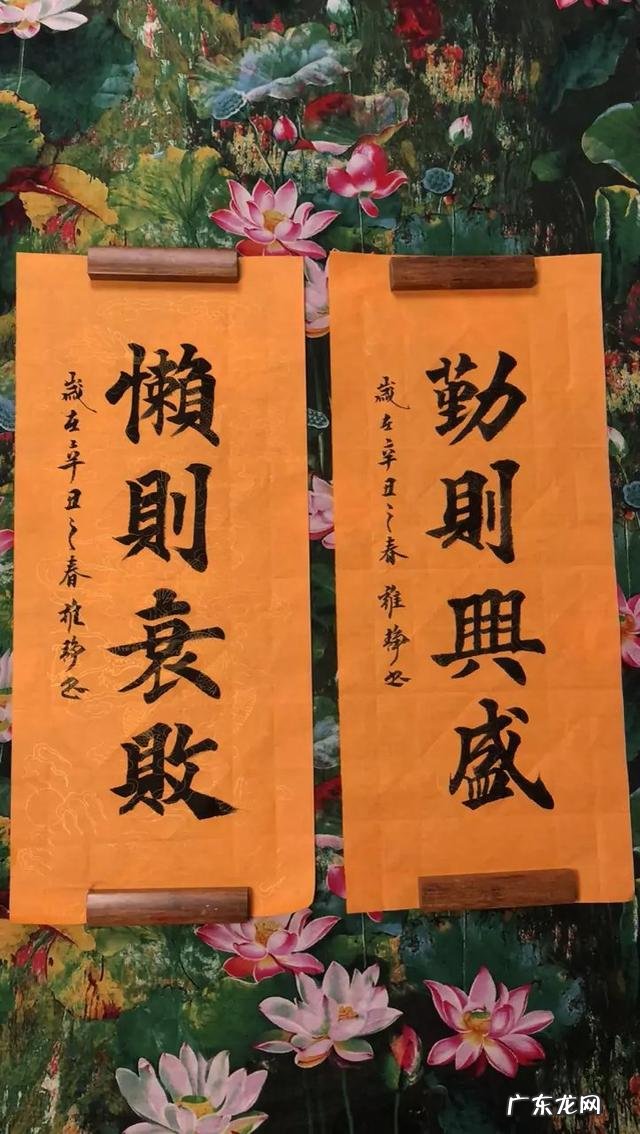 勤則興盛
歲在辛丑之春雅静书
懶則衰敗
歲在辛丑之春雅静书
广东龙网